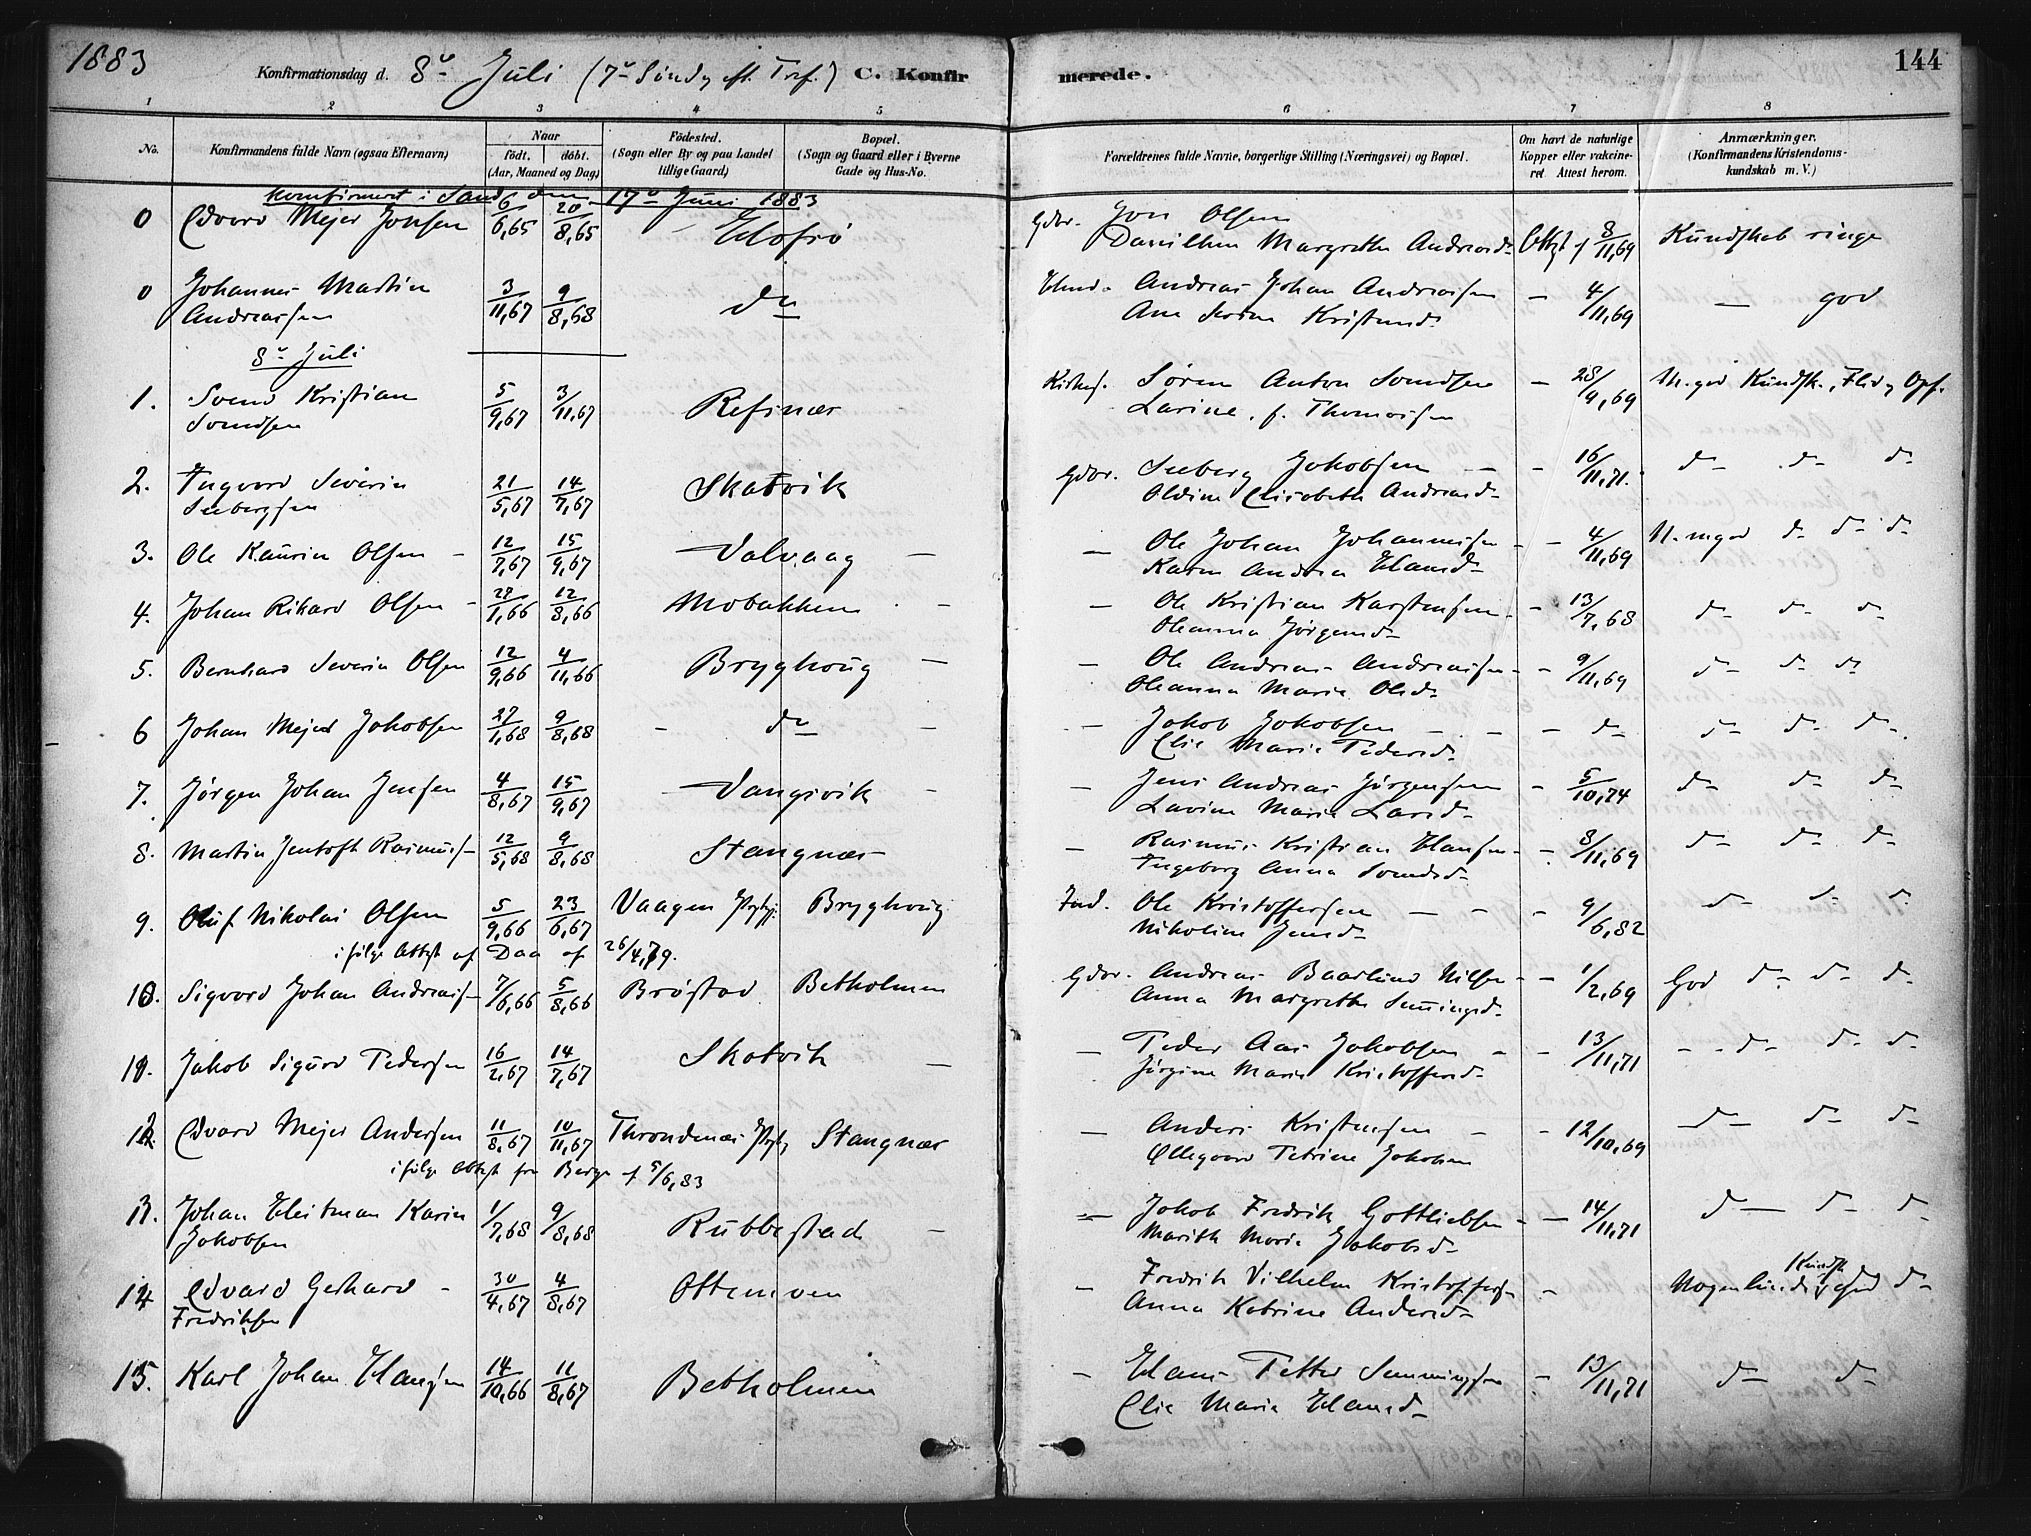 1883
Konfirmationsdag d. 8de Juli (7de Sønd. eft. Tref.) C. Konfirmerede. 144
1 2 3 4 5 6 7 8
No. Konfirmandens fulde Navn (ogsaa Efternavn) Naar født. døbt. (Aar, Maaned og Dag) Fødested. (Sogn eller By og paa Landet tillige Gaard) Bopæl. (Sogn og Gaard eller i Byerne Gade og Hus-No.) Forældrenes fulde Navne, borgerlige Stilling (Næringsvei) og Bopæl. Om havt de naturlige Kopper eller vakcineret. Attest herom. Anmærkninger. (Konfirmandens Kristendomskundskab m. V.)
Konfirmert i Sand den 17de Juni 1883
0 Edvard Mejer Jonsen 6/6,65 20/8,65 Elofsø Gdbr. Jon Olsen Attst f 8/11,69 Kundskab ringe
Danilhen Margrethe Andreasd.
0 Johannes Martin 3/11,67 9/8,68 do Andreas Johan Andreassen - 4/11,69 — god
Andreassen Ane
8de Juli
1. Svend Kristian 5/9,67 3/11,67 Refsnær Kirkes. Søren Anton Svendsen - 28/9,69 M. god Kundsk., Flid og Opf.
Svendsen Larine f. Thomassen
2. Ingvard Severin 21/5,67 14/7,67 Skatvik Gdbr. Seeberg Jakobsen - - 16/11,71. d- d- d-
Seebergsen Oldine Elisabeth Andreasd-
3. Ole Kaurin Olsen - 12/7,67 15/9,67 Valvaag - - Ole Johan Johannessen - - 4/11,69 N. mgod d- d- d-
Karen Andrea Hansd-
4. Johan Rikard Olsen - 28/1,66 12/8,66 Mobakken - - Ole Kristian Karstensen - - 13/7,68 d- d- d-
Oleanna Jørgensd-
5. Bernhard Severin Olsen 12/9,66 4/11,66 Bryghoug - - Ole Andreas Andreassen - - 9/11,69 d- d- d-
Oleanna Marie Olsd-
6 Johan Mejer Jakobsen 27/1,68 9/8,68 - do - - Jakob Jakobsen - - - d- d- d- d-
Elie Marie Pedersd-
7. Jørgen Johan Jensen 4/8,67 15/9,67 - Vangsvik - - Jens Andreas Jørgensen - 5/10,74 d- d- d-
Lavine Marie Larsd-
8. Martin Jentoft Rasmuss- 12/5,68 9/8,68 Stangnær - Rasmus Kristian Hansen - - 8/11,69 d- d- d-
Ingeborg Anna Svendsd-
9. Oluf Nikolai Olsen 5/9,66 23/6,67 Vaagen Prgj. Bryghoug Ind. Ole Kristoffersen - - - 9/6,82 d- d- d-
Nikoline Jensd-
ifølge Attest af Daa af 26/4,79.
10. Sigvard Johan Andreass- 7/6,66 5/8,66 Brøstad Betholmen Gdbr. Andreas Baarlund Nilsen - - 1/2,69 God d- d- d-
Anna Margrethe Semmingsd-
11. Jakob Sigurd Pedersen 16/2,67 14/7,67 Skatvik - - Peder Aas Jakobsen - - 13/11,71 - - d- d- d-
Jørgine Marie Kristoffersd-
12. Edvard Mejer Andersen 11/8,67 10/11,67 Throndenæs Prgj. Stangnær - Anders Kristensen - - 12/10,69 d- d- d-
Ellegaard Petrine Jakobsen
ifølge Attest fra Berge f 5/6,83
13. Johan Heitman Karin 1/7,68 9/8,68 Rubbestad - - Jakob Fredrik Gottliebsen - - 14/11,71 d- d- d-
Jakobsen Marith Marie Jakobsd-
14 Edvard Gerhard - 30/4,67 4/8,67 Ottemoen - Fredrik Vilhelm Kristoffers- - Nogenlunde Kundsk d-
Fredriksen Anna Katrine Andersd-
15. Karl Johan Hansen 14/10,66 11/8,67 Betholmen - Hans Petter Semmingsen - 13/11,71 d- d-
Elie Marie Hansd-